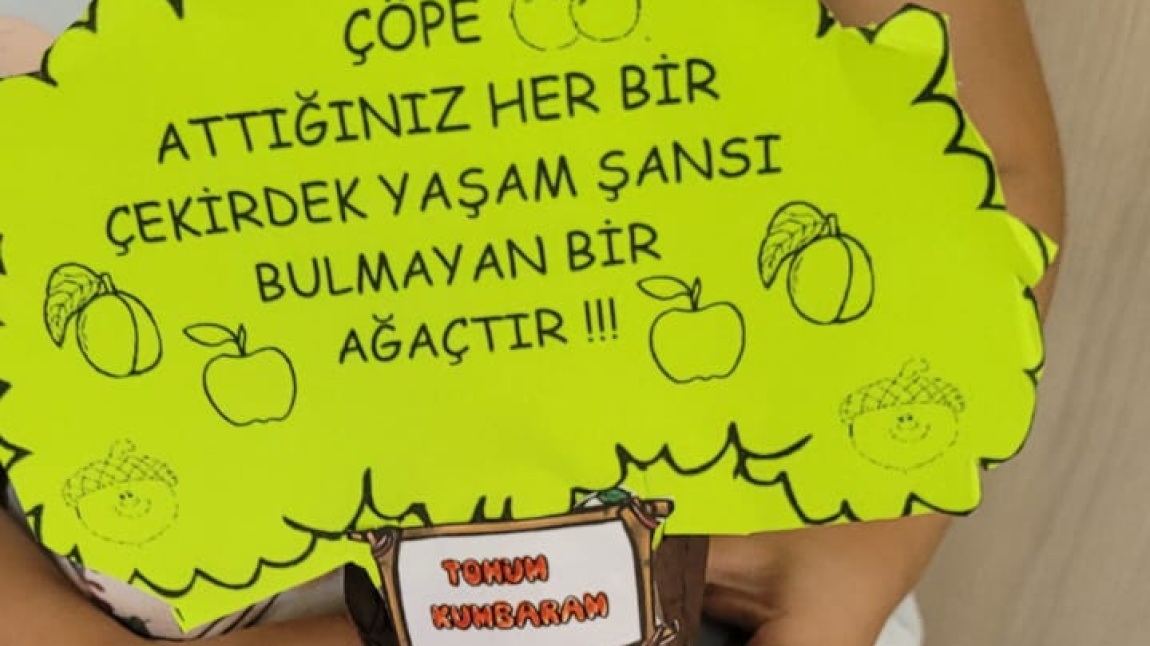 ÇÖPE
ATTIĞINIZ HER BİR
ÇEKİRDEK YAŞAM ŞANSI
BULMAYAN BİR
AĞAÇTIR !!!
TOHUM
KUMBARAM